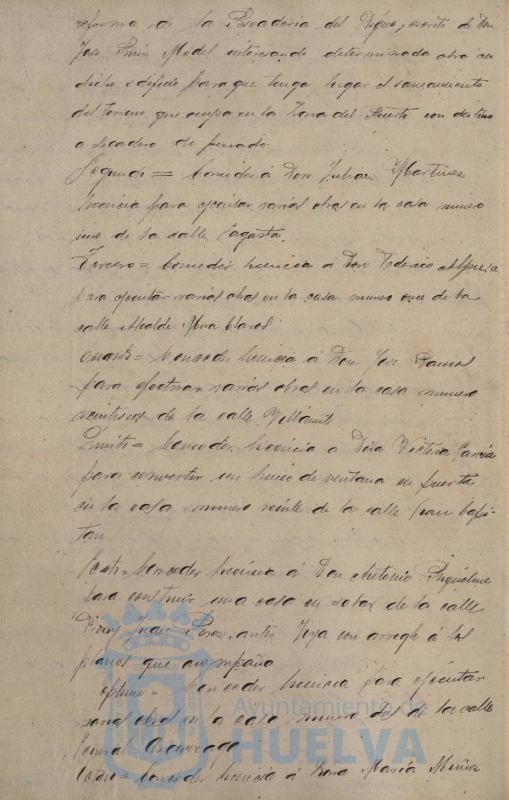 reforma de la Pescaderia del Dique, escrito de Don
José Pinzón interesando determinada obra en
dicho edificio para que tenga lugar el saneamiento
del terreno que ocupa en la Zona del Puerto con destino
a secadero de pescado.
Segundo = Conceder á Don Julian Martinez
licencia para ejecutar varias obras en la casa numero
uno de la calle Sagasta.
Tercero = Conceder licencia á Don Federico
para ejecutar varias obras en la casa numero once de la
calle Alcalde Mora Claros
Cuarto = Conceder licencia á Don José Ramos
para efectuar varias obras en la casa numero
veintiseis de la calle
Quinto = Conceder licencia a Doña Victoria García
para convertir un hueco de ventana en puerta
en la casa numero veinte de la calle Gran Capi-
tan
Sexto = Conceder licencia á Don Antonio Riquelme
para construir una casa en solar de la calle
Fray Juan Perez, antes Joya con arreglo á los
planos que acompaña
eptimo = Conceder licencia para ejecutar
varias obras en la casa numero dos de la calle
General Azcarraga
Octavo = Conceder licencia á Dona Maria Muñoz
Ayuntamiento de
HUELVA